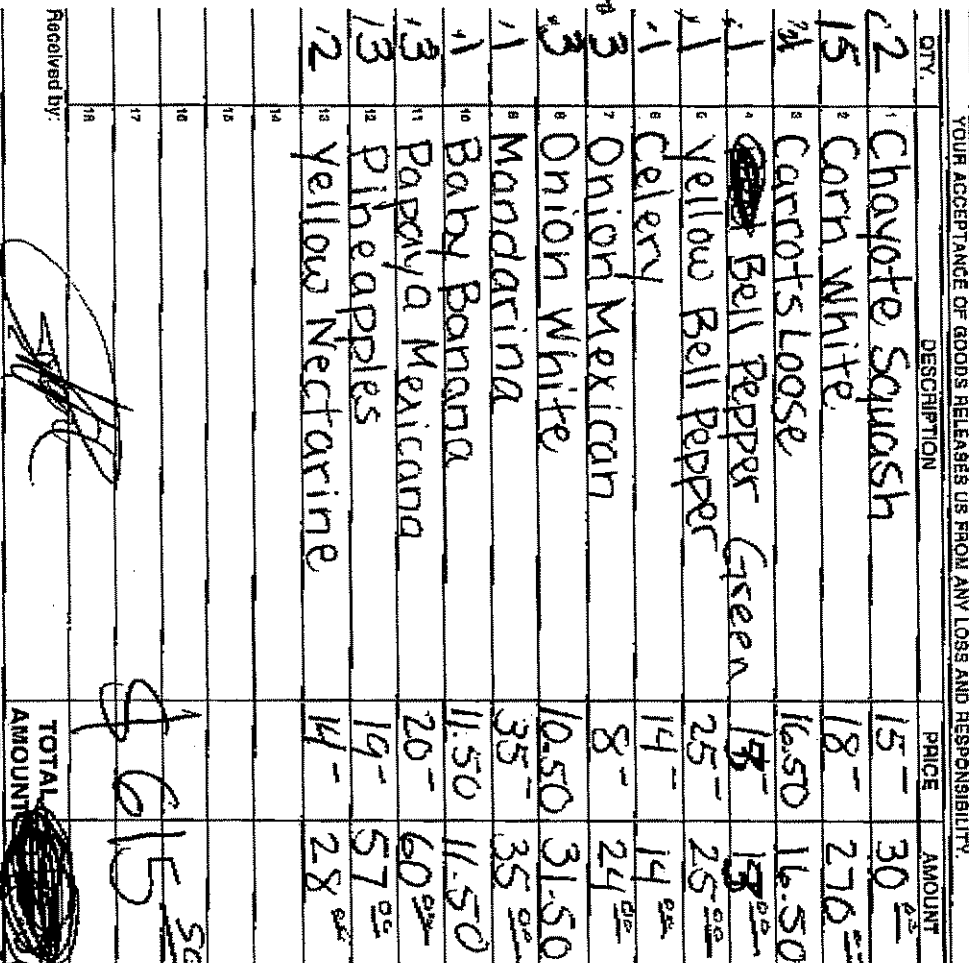 YOUR ACCEPTANCE OF GOODS RELEASES US FROM ANY LOSS AND RESPONSIBILITY.
QTY. DESCRIPTION PRICE AMOUNT
2 1 Chayote Squash 15- 30.00
15 2 Corn White 18- 270.00
3 Carrots Loose 16.50 16.50
1 4 Bell Pepper Green 13- 13.00
1 5 Yellow Bell Pepper 25- 25.00
1 6 Celery 14- 14.00
3 7 Onion Mexican 8- 24.00
3 8 Onion White 10.50 31.50
1 9 Mandarina 35- 35.00
1 10 Baby Banana 11.50 11.50
3 11 Papaya Mexicana 20- 60.00
3 12 Pineapples 19- 57.00
2 13 Yellow Nectarine 14- 28.00
14
15
16
17 $ 615.50
18
Received by: TOTAL AMOUNT